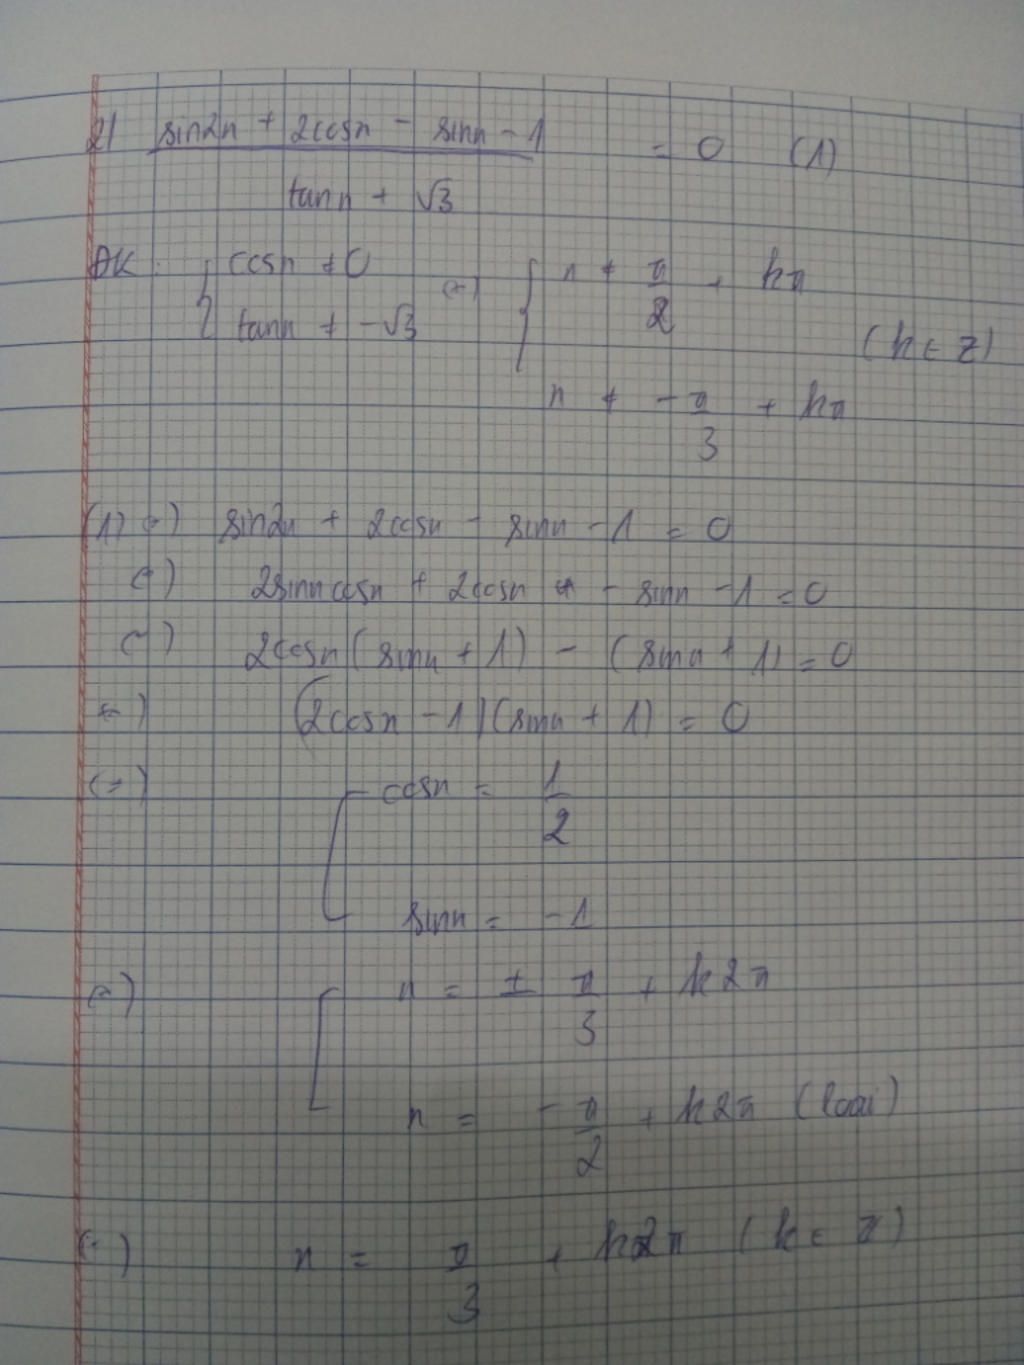 2) sin2x + 2cosx - sinx - 1 = 0 (1)
tanx + √3
ĐK: { cosx ≠ 0 (=) { x ≠ π/2 + kπ
tanx ≠ -√3 (k ∈ Z)
x ≠ -π/3 + kπ
(1) (=) sin2x + 2cosx - sinx - 1 = 0
(=) 2sinxcosx + 2cosx - sinx - 1 = 0
(=) 2cosx(sinx + 1) - (sinx + 1) = 0
(=) (2cosx - 1)(sinx + 1) = 0
(=) [ cosx = 1/2
sinx = -1
(=) [ x = ± π/3 + k2π
x = -π/2 + k2π (loại)
(=) x = π/3 + k2π (k ∈ Z)